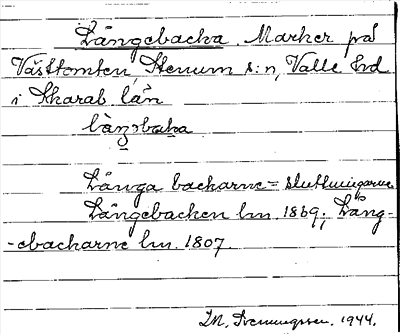 Långebacka. Marker på
Västtomten, Stenum s:n, Valle hd
i Skarab. län
låŋəbaka
Långa backarne = sluttningarna
Långebacken lm. 1869; Lång-
-ebackarne lm. 1807.
IM. Svenungsson. 1944.